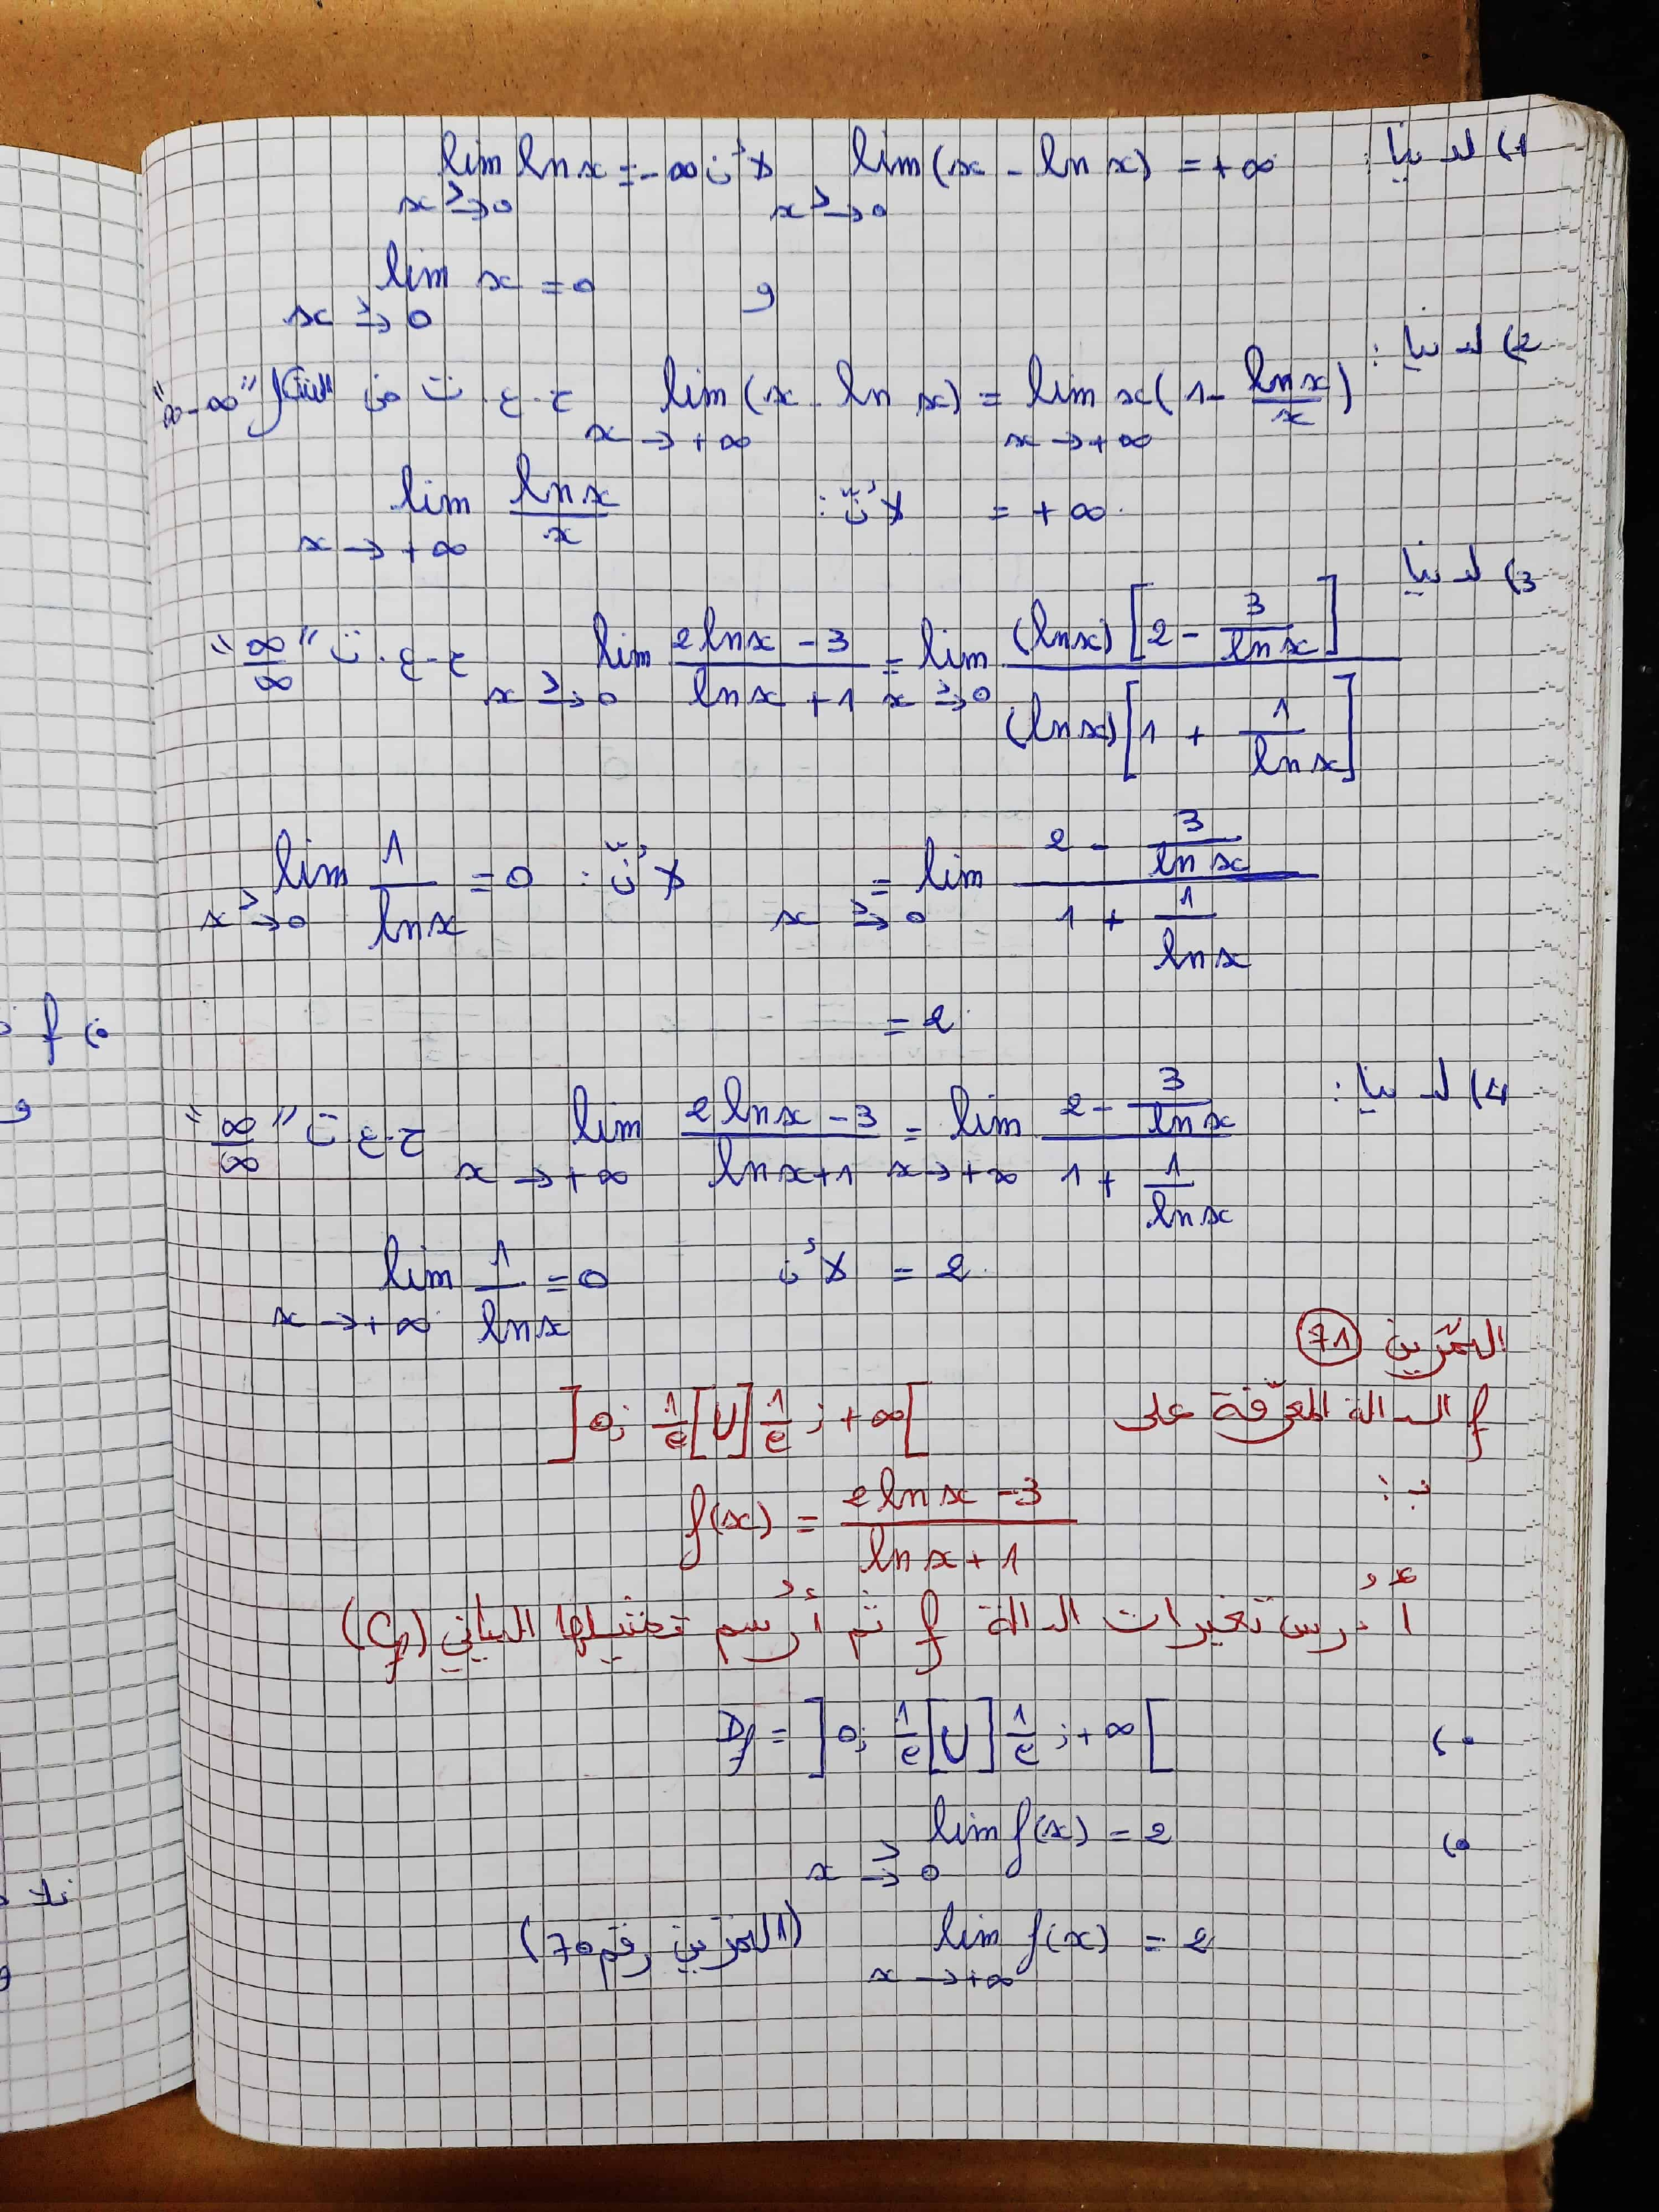 1) لدينا: lim(x - ln x) = +∞ لأن lim ln x = -∞
x →> 0 x →> 0
و lim x = 0
x →> 0
2) لدينا:
lim (x - ln x) = lim x(1 - ln x / x) ح.ع.ت من الشكل "∞-∞"
x → +∞ x → +∞
= +∞ لأنّ: lim ln x / x
x → +∞
3) لدينا
lim (2 ln x - 3)/(ln x + 1) = lim (ln x)[2 - 3/ln x] / (ln x)[1 + 1/ln x] ح.ع.ت "∞/∞"
x →> 0 x →> 0
= lim (2 - 3/ln x)/(1 + 1/ln x) لأنّ: lim 1/ln x = 0
x →> 0 x →> 0
= 2
4) لدينا:
lim (2 ln x - 3)/(ln x + 1) = lim (2 - 3/ln x)/(1 + 1/ln x) ح.ع.ت "∞/∞"
x → +∞ x → +∞
= 2 لأن lim 1/ln x = 0
x → +∞
التمرين 71
f الدالة المعرّفة على ]0; 1/e[ U ]1/e ; +∞[
بـ:
f(x) = (2 ln x - 3)/(ln x + 1)
أدرس تغيرات الدالة f ثم أرسم تمثيلها البياني (Cf)
Df = ]0; 1/e[ U ]1/e ; +∞[
lim f(x) = 2
x →> 0
lim f(x) = 2 (التمرين رقم 70)
x → +∞
f
و